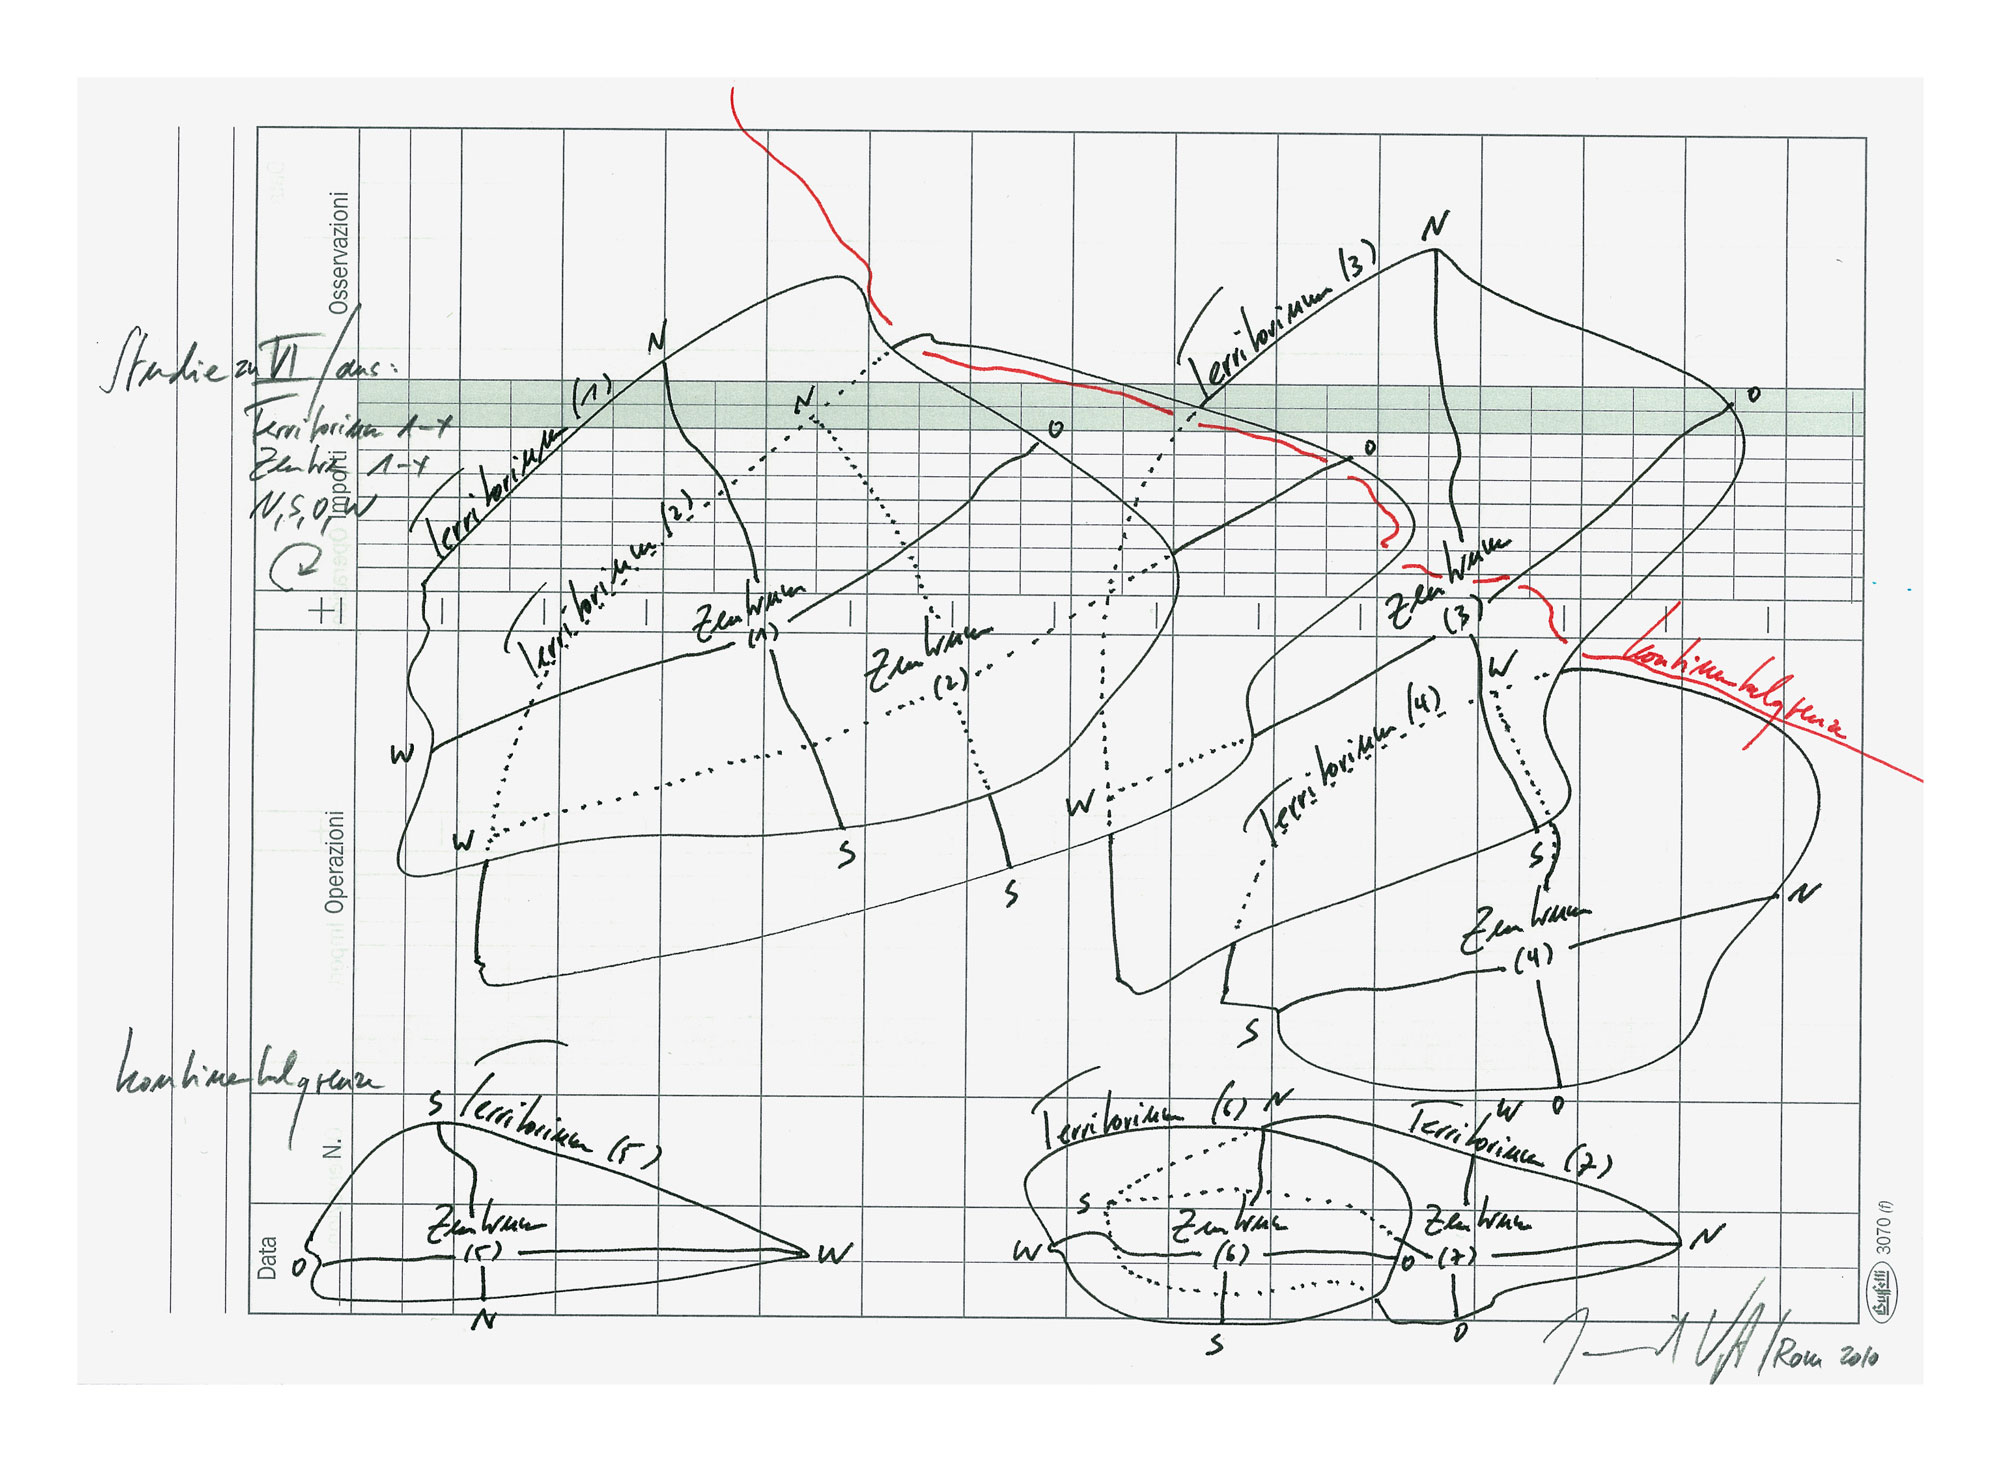 Osservazioni
Importi
Operazioni
N.
Data
Studie zu VI / aus:
Territorium 1-x
Zentrum 1-x
N, S, O, W
+
Kontinentalgrenze
Territorium (1)
N
O
S
W
Zentrum
(1)
Territorium (2)
N
O
S
W
Zentrum
(2)
Territorium (3)
N
O
S
W
Zentrum
(3)
Kontinentalgrenze
Territorium (4)
W
N
S
O
Zentrum
(4)
Territorium (5)
S
O
W
N
Zentrum
(5)
Territorium (6)
N
W
O
S
Zentrum
(6)
Territorium (7)
W
S
N
O
Zentrum
(7)
/ Rom 2010
Buffetti
3070 (f)